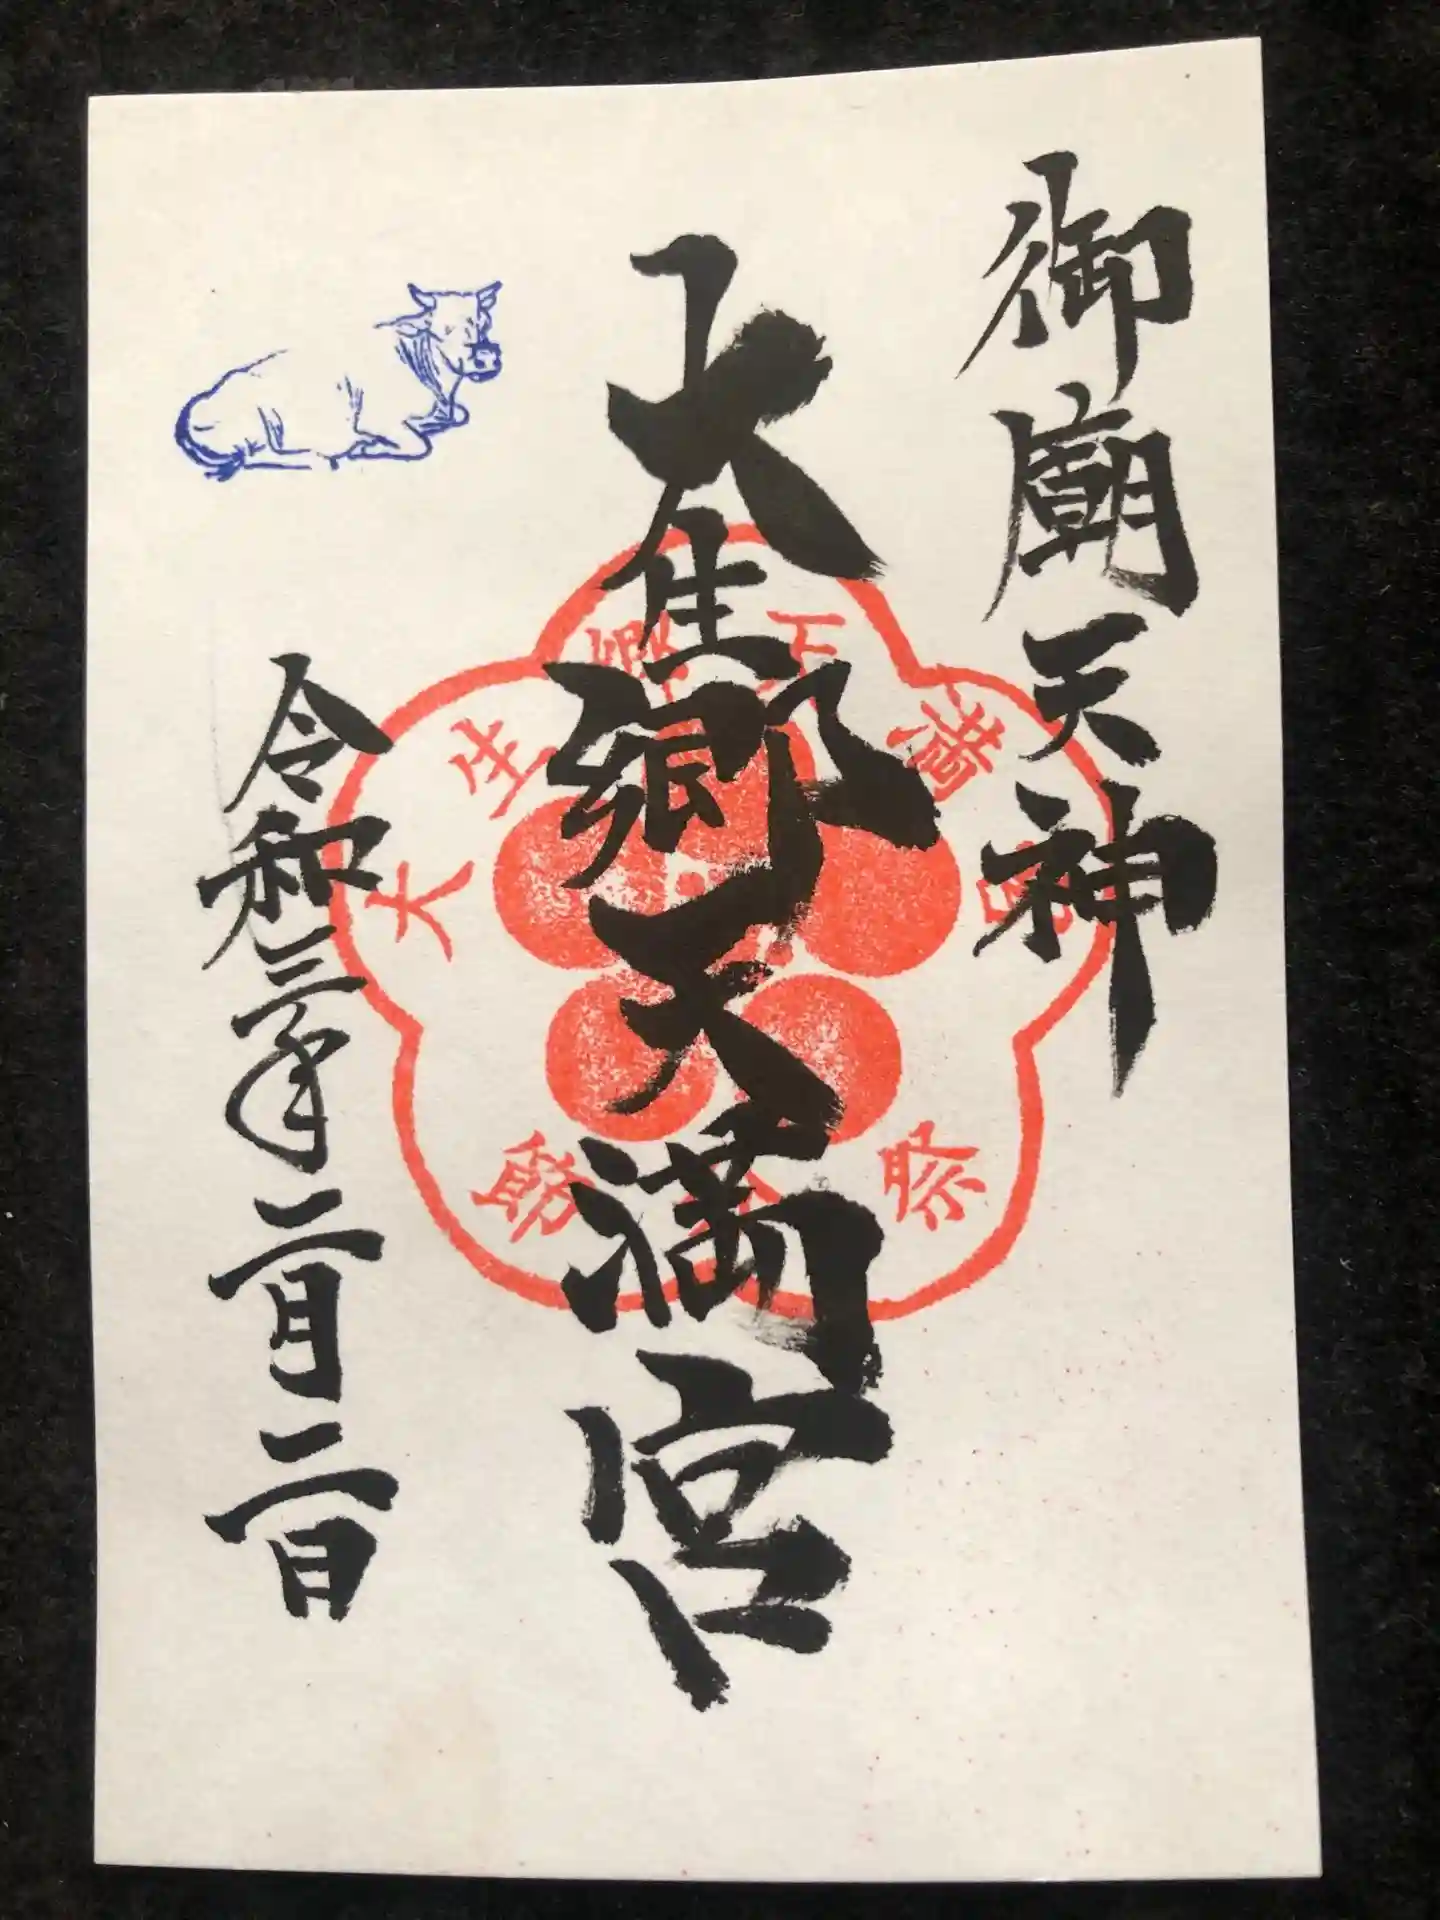 御廟天神
大生郷天満宮
令和三年二月二日
大生郷天満宮
祭